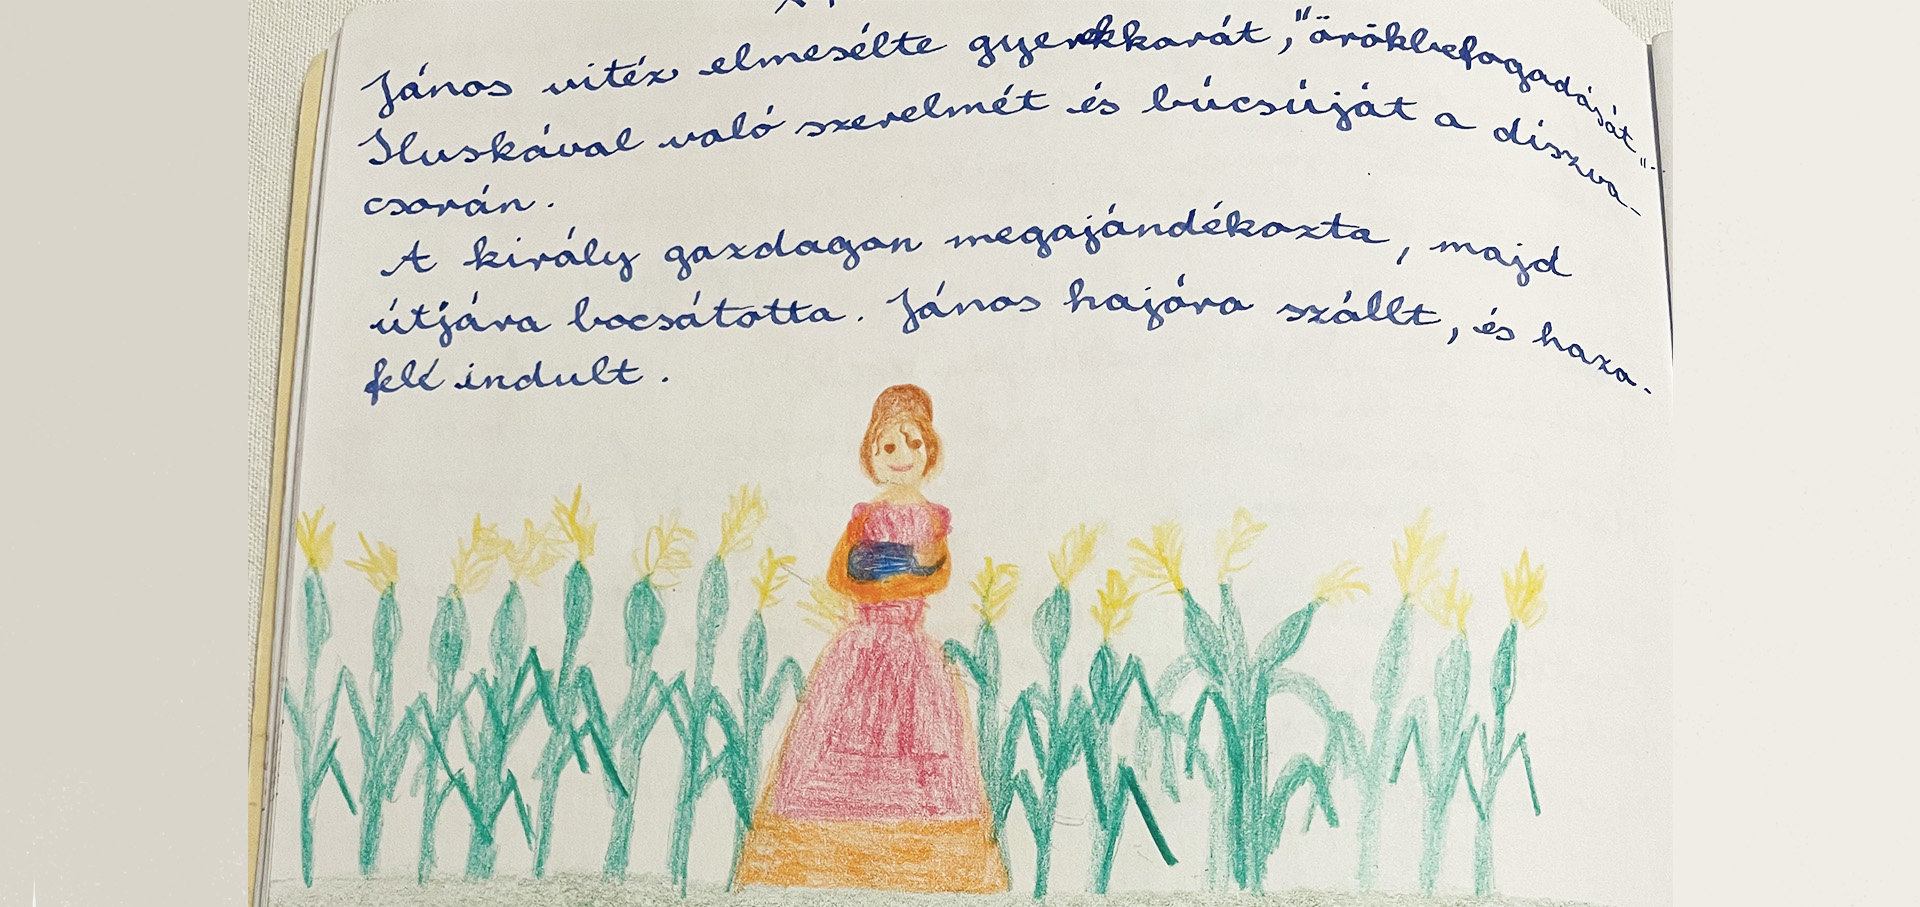 János vitéz elmesélte gyerekkorát, "örökbefogadását"
Iluskával való szerelmét és búcsúját a díszva-
csorán.
A király gazdagon megajándékozta, majd
útjára bocsátotta. János hajóra szállt, és haza-
felé indult.